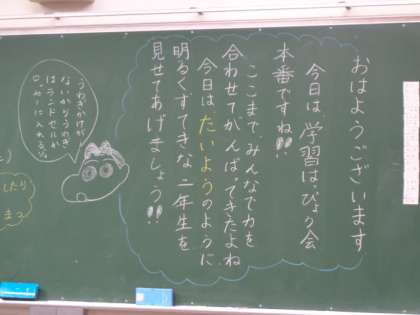 おはようございます
今日は、学習はっぴょう会
本番ですね!!
ここまで、みんなで力を
合わせてがんばってきたよね
今日は たいようのように
明るくすてきな二年生を
見せてあげましょう!!
うわぎかけが
ないから うわぎ
はランドセルか
ロッカーに入れるゾ
したり